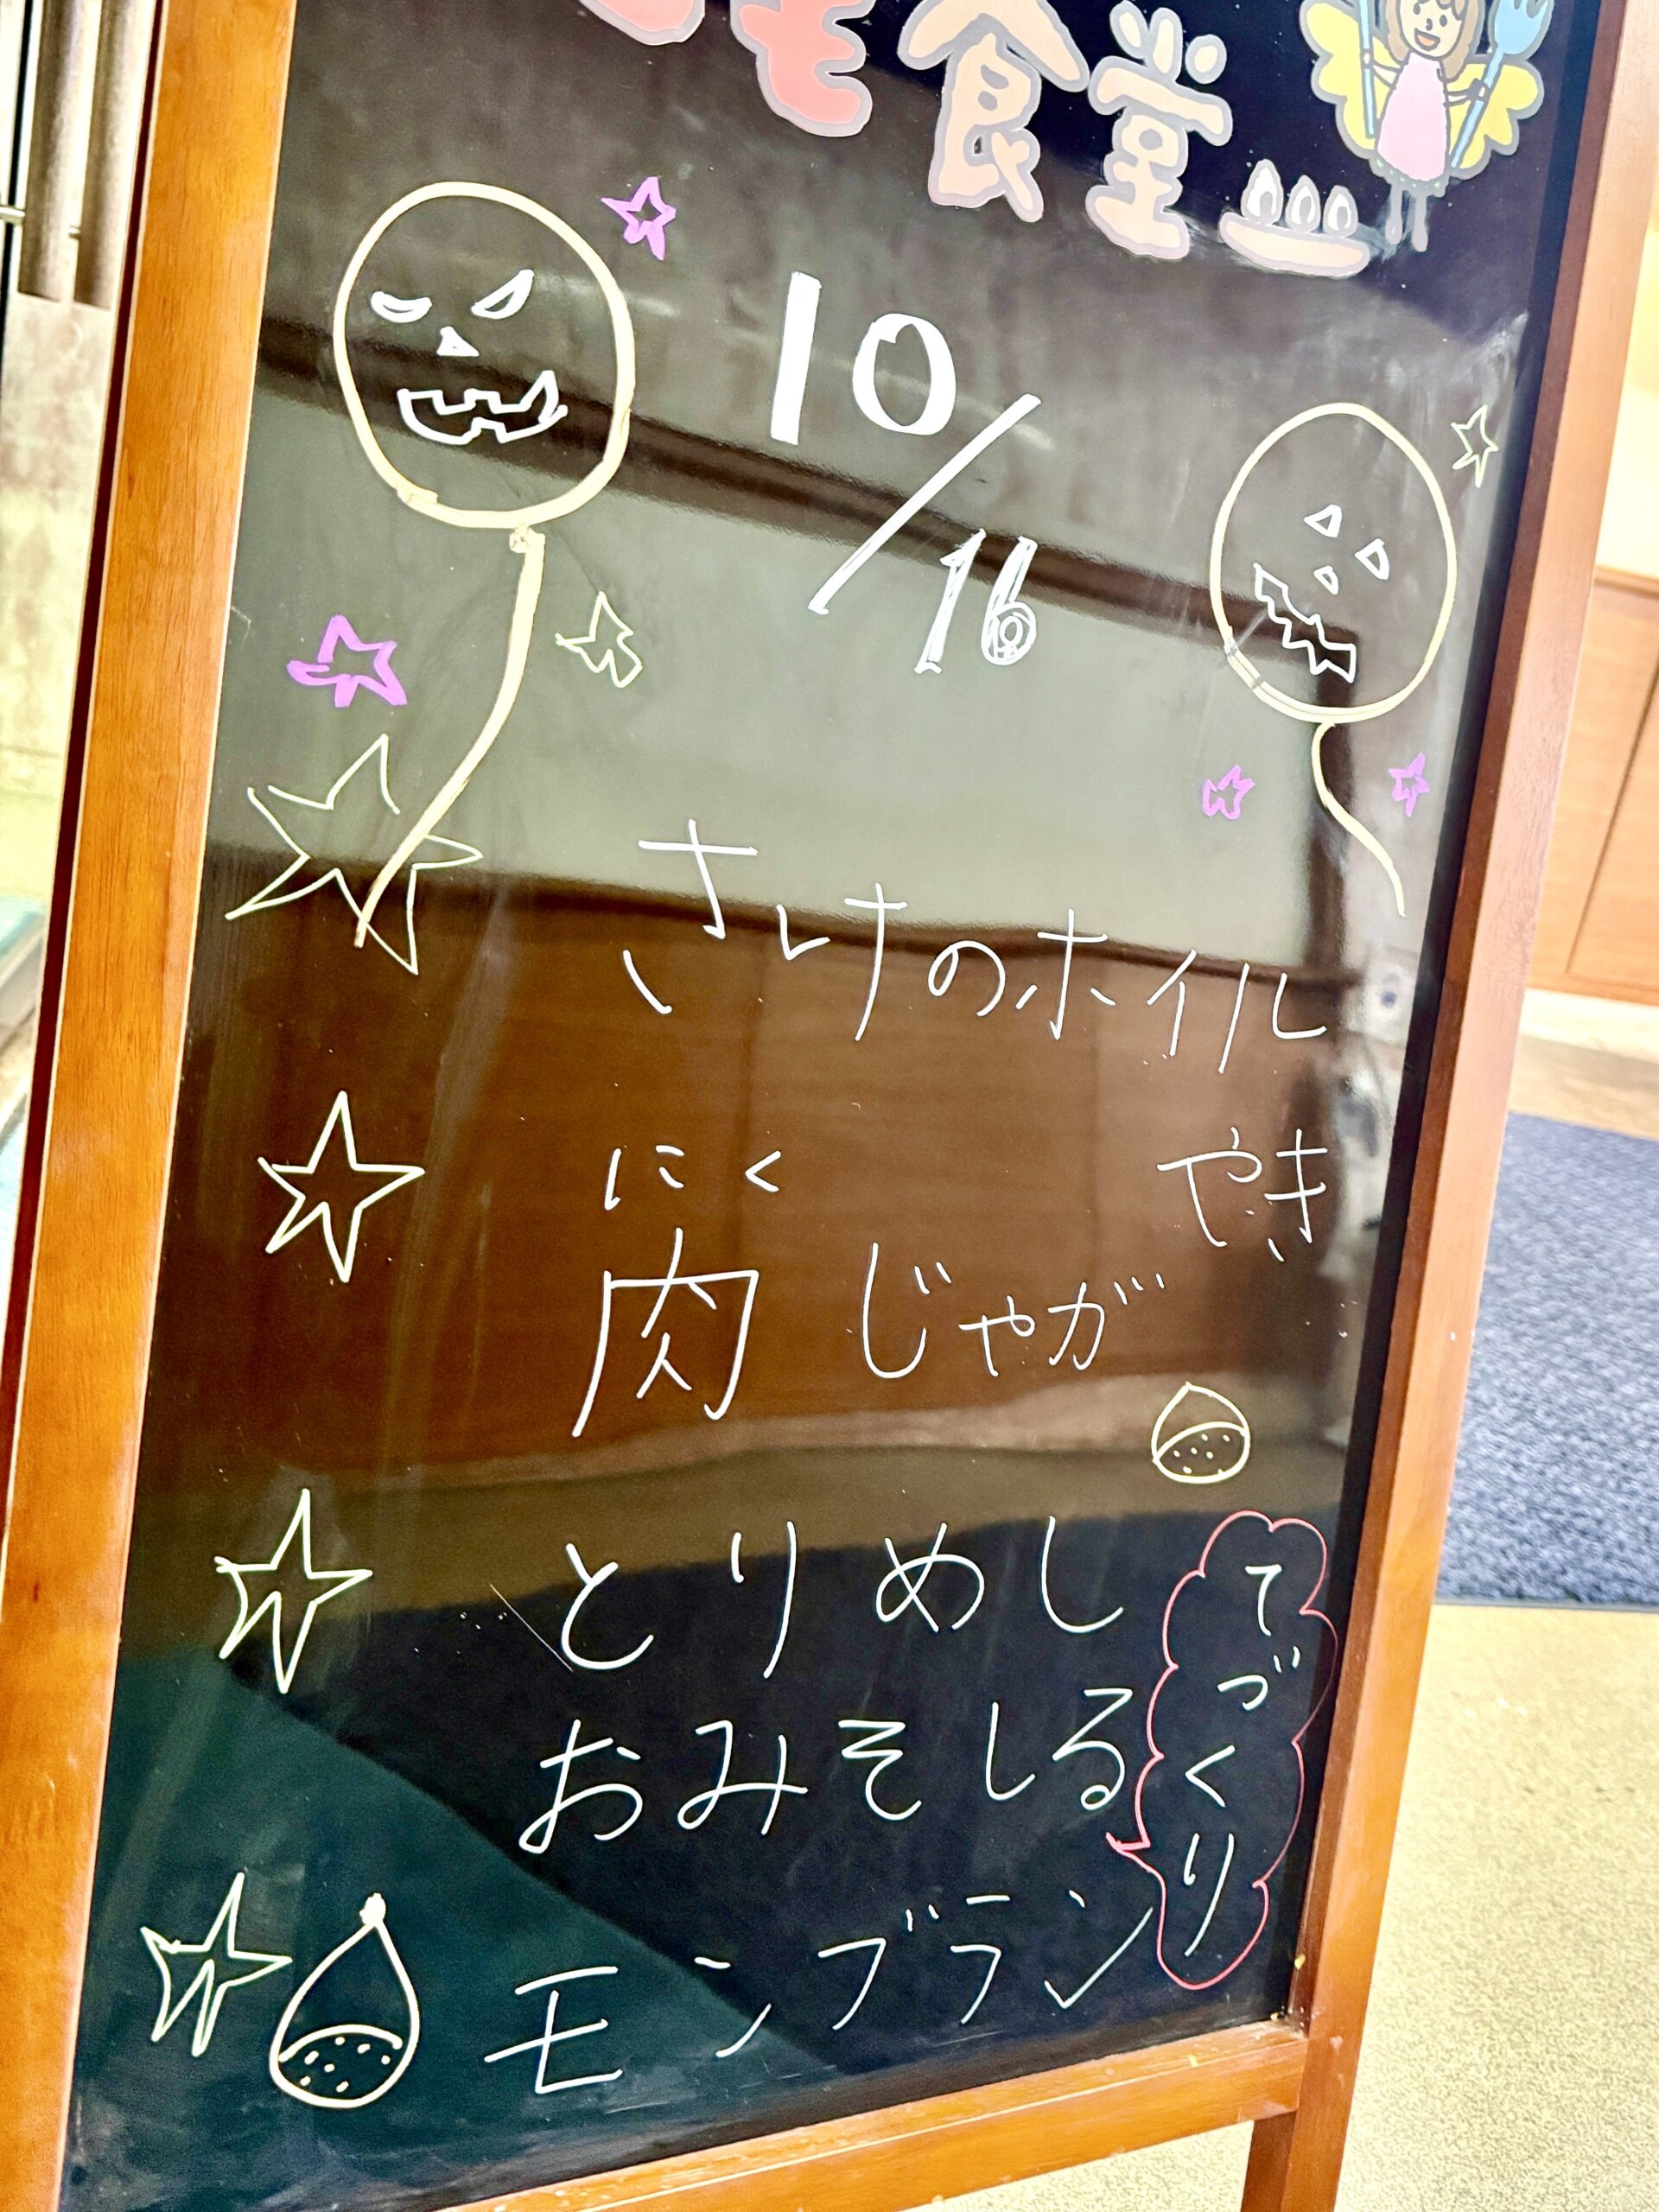 食堂
10/16
さけのホイル
やき
にく
肉じゃが
とりめし
おみそしる
てづくり
モンブラン